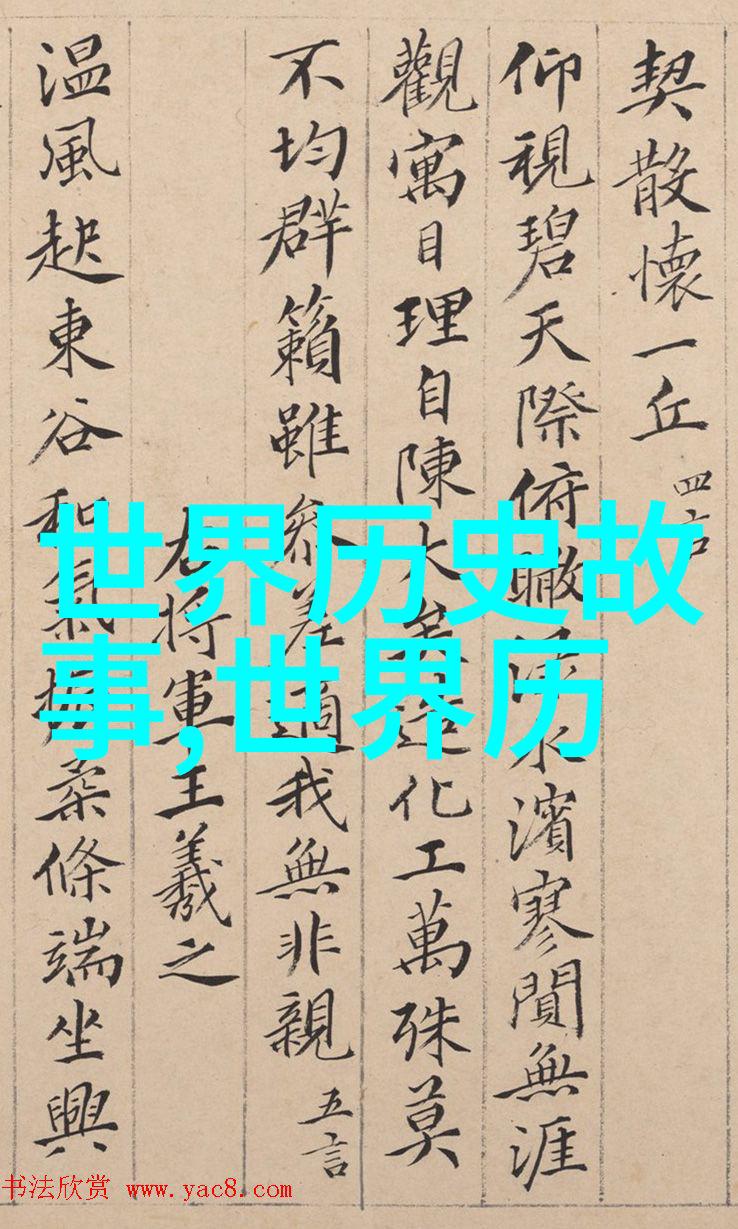 契散懷一丘 四言
仰視碧天際俯瞰淥水濱寥閴無涯
觀寓目理自陳大矣造化工萬殊莫
不均群籟雖參差適我無非親 五言
右將軍王羲之
温風起東谷和氣振柔條端坐興
世界历史故
事,世界历
书法欣赏 www.yac8.com